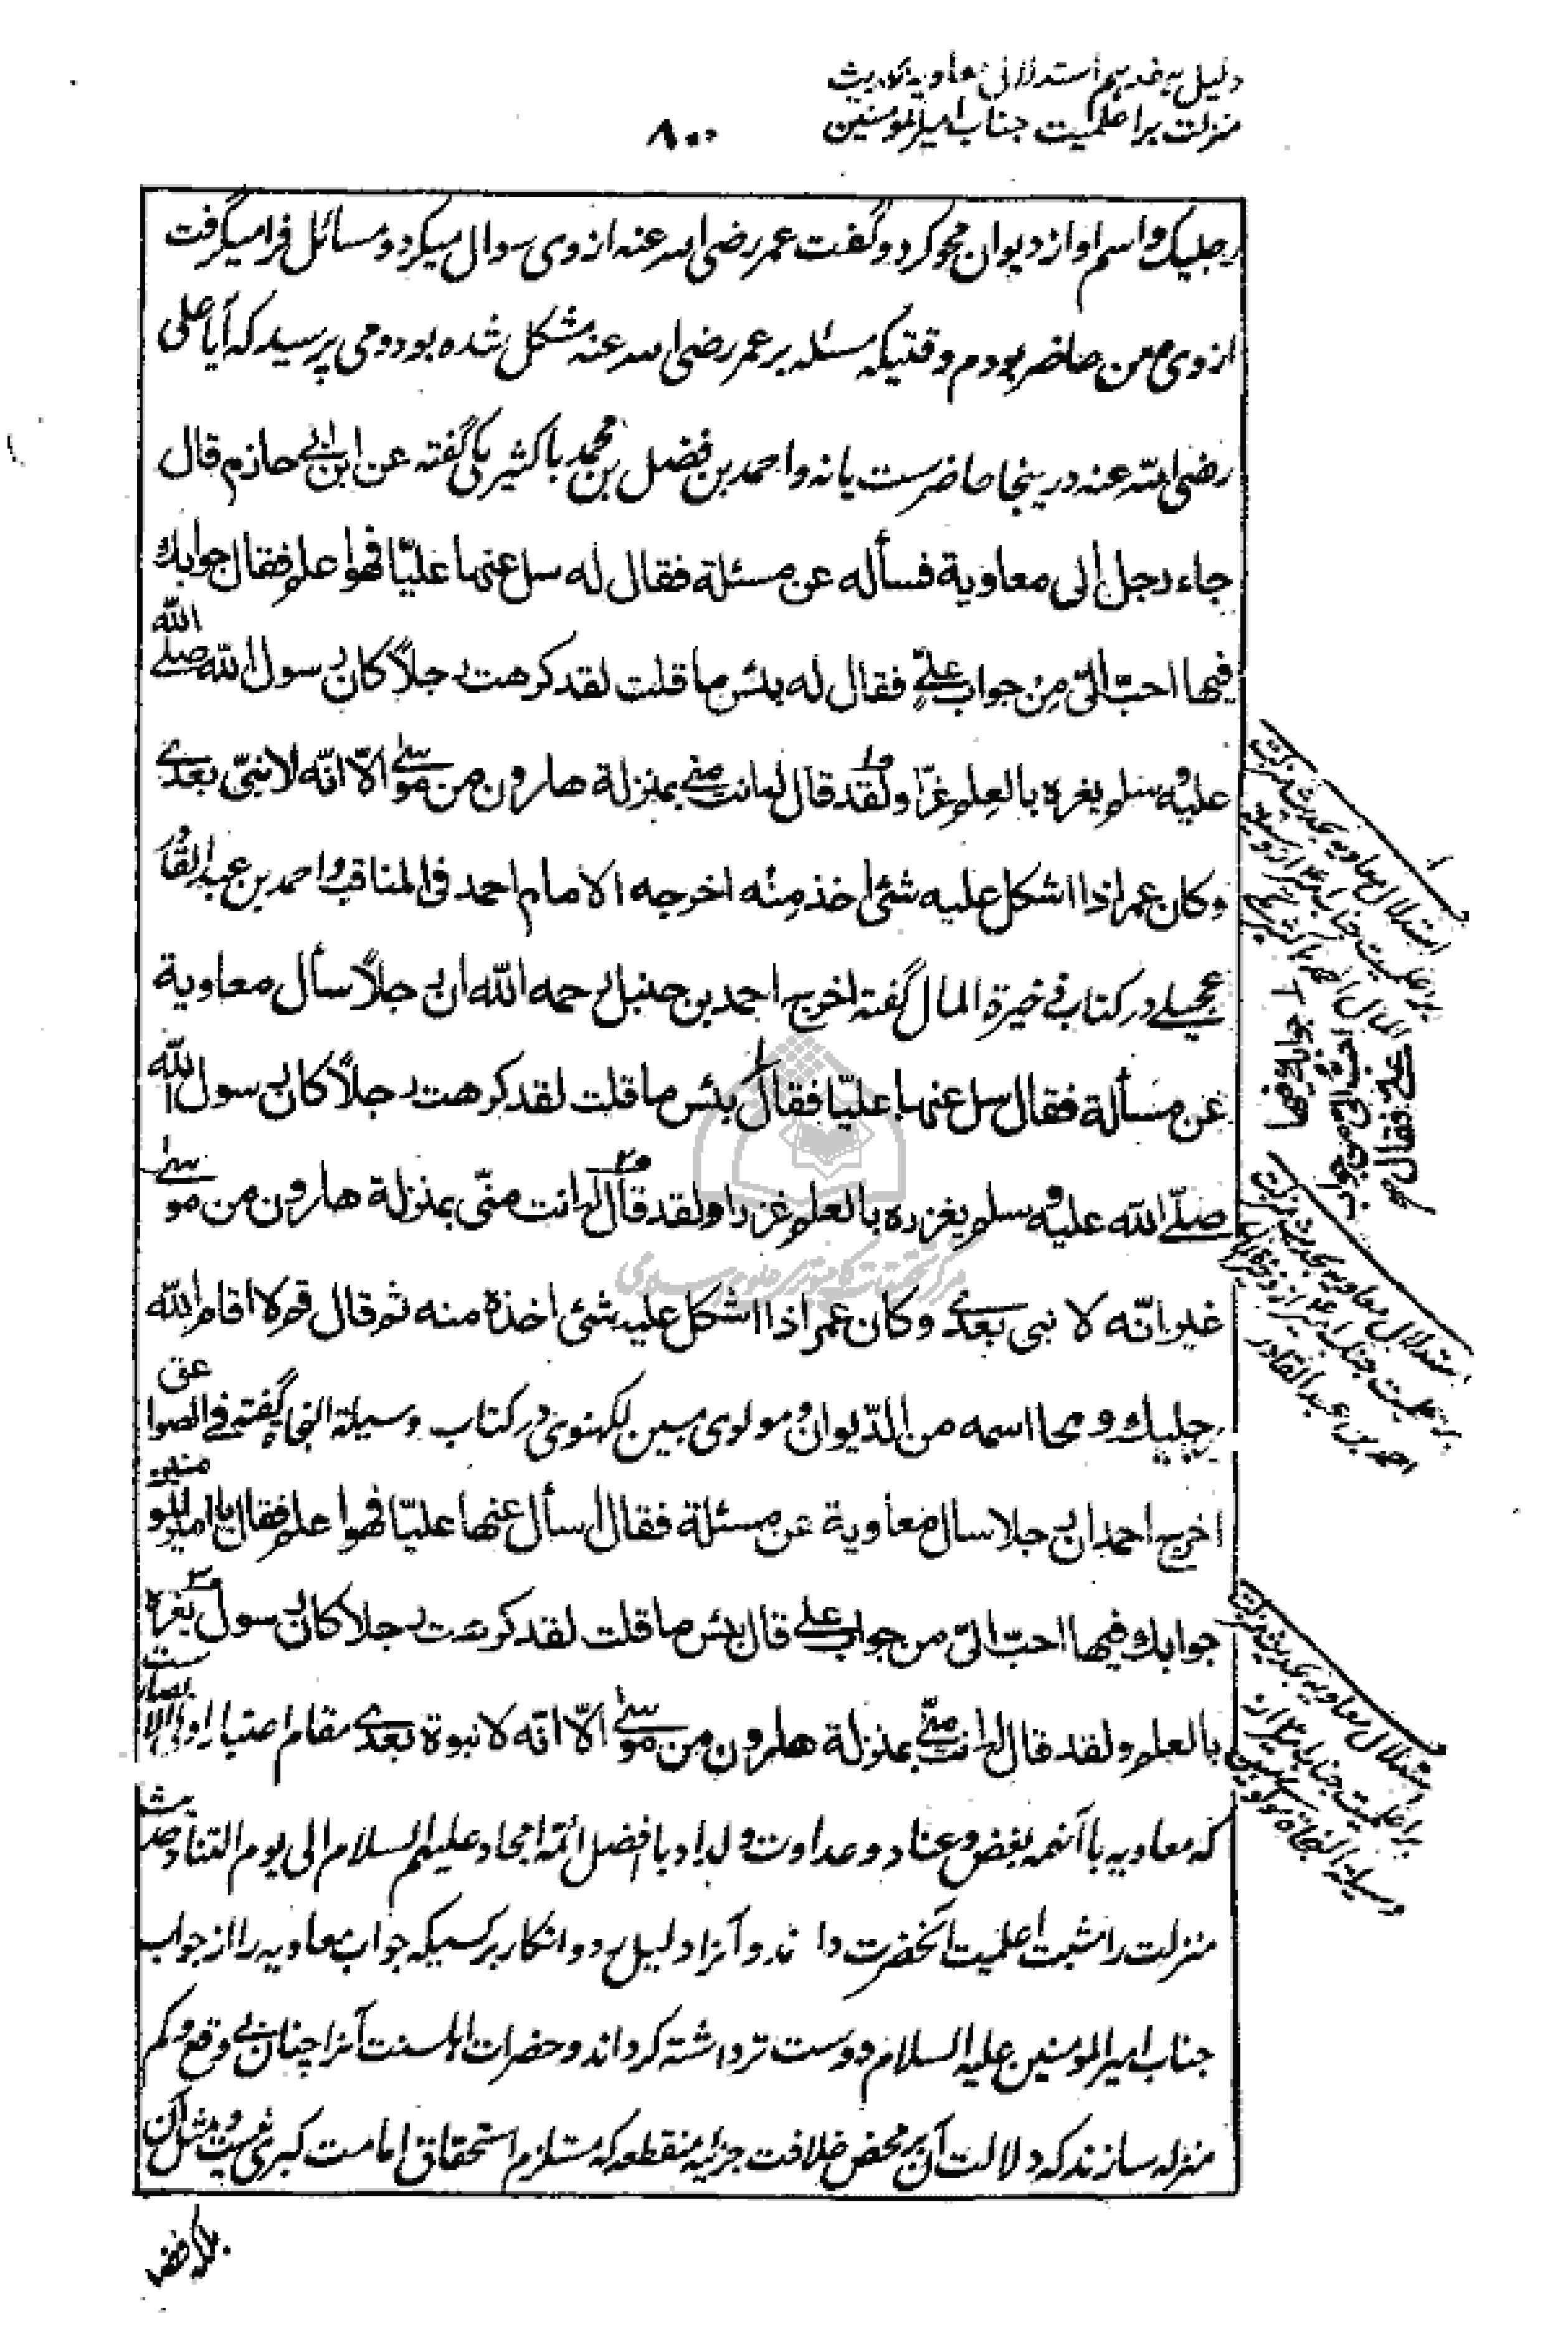 دلیل هفدهم استدلال معاویه بحدیث
منزلت بر اعلمیت جناب امیرالمومنین
۸۰۰
رجلیک واسم او از دیوان محو کرد و گفت عمر رضی الله عنه از وی سوال میکرد و مسائل فرا میگرفت
از وی و من حاضر بودم وقتیکه مسئله بر عمر رضی الله عنه مشکل شده بود و می پرسید که آیا علی
رضی الله عنه در ینجا حاضرست یا نه واحمد بن فضل بن محمد باکثیر مکی گفته عن ابن ابی حازم قال
جاء رجل الی معاویة فسأله عن مسئلة فقال له سل عنها علیّا فهو اعلم فقال جوابك
فیها احبّ الیّ من جواب علیّ فقال له بئس ما قلت لقد کرهت رجلاً کان رسول الله صلے الله
علیه وسلم یغره بالعلم غرّا ولقد قال له انت منی بمنزلة هارون من موسی الّا انّه لا نبیّ بعدی
وکان عمر اذا اشکل علیه شئ اخذ منه اخرجه الامام احمد فی المناقب واحمد بن عبد القادر
عجیلی در کتاب ذخیرة المال گفته اخرج احمد بن حنبل رحمه الله ان رجلاً سأل معاویة
عن مسألة فقال سل عنها علیّا فقال بئس ما قلت لقد کرهت رجلاً کان رسول الله
صلّے الله علیه وسلم یغزره بالعلم غزرا ولقد قال له انت منّی بمنزلة هارون من موسی
غیر انّه لا نبی بعدی وکان عمر اذا اشکل علیه شئ اخذه منه ثم قال قم لا اقام الله
رجلیك ومحا اسمه من الدّیوان و مولوی مبین لکهنوی در کتاب وسیلة النجاة گفته فی الصواعق
اخرج احمد ان رجلا سال معاویة عن مسئلة فقال اسأل عنها علیّا فهو اعلم فقال یا امیر المومنین
جوابك فیها احبّ الیّ من جواب علی قال بئس ما قلت لقد کرهت رجلا کان رسول یغره
بالعلم ولقد قال له انت منّی بمنزلة هارون من موسی الّا انّه لا نبوة بعدی مقام اعتبار اولی الابصارست
که معاویه با آنهمه بغض و عناد و عداوت و لداد با افضل ائمه امجاد علیهم السلام الی یوم التناد حدیث
منزلت را مثبت اعلمیت آنحضرت داند و آنرا دلیل رد و انکار بر کسیکه جواب معاویه را از جواب
جناب امیرالمومنین علیه السلام دوست تر داشته گرداند و حضرات اهلسنت آنرا چنان بی وقع و کم
منزله سازند که دلالت آن بر محض خلافت جزئیه منقطعه که مستلزم استحقاق امامت کبری نیست و مثل آن
استدلال معاویه بحدیث منزلت
بر اعلمیت جناب امیر از وسیلة
جوابك فیها
احبّ الیّ
علی فقال
استدلال معاویه بحدیث منزلت
بر اعلمیت جناب امیر از ذخیرة المال
احمد بن عبد القادر
استدلال معاویه بحدیث منزلت
بر اعلمیت جناب امیر از
وسیلة النجاة مولوی مبین